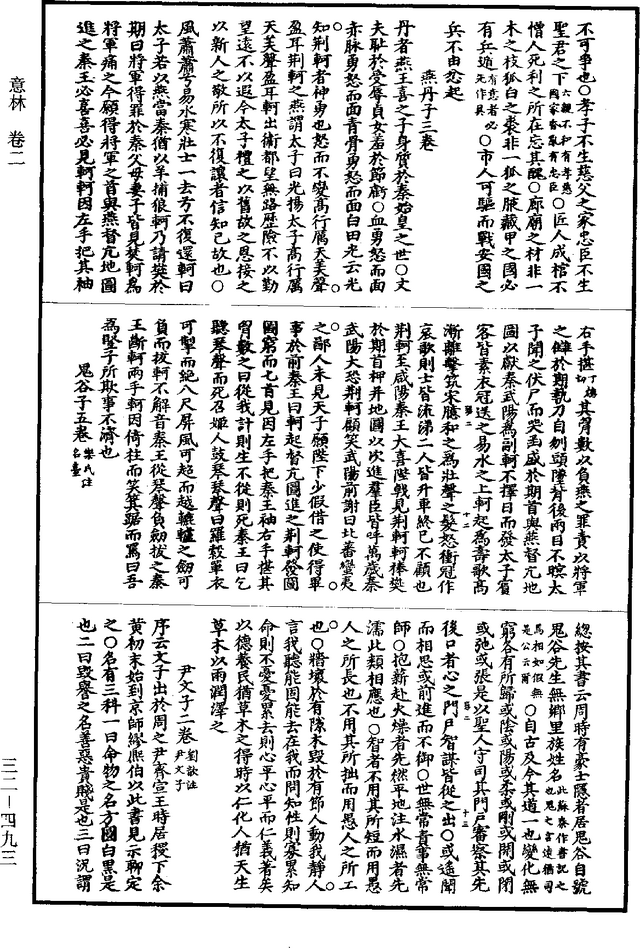 意林 卷二
不可爭也○孝子不生慈父之家忠臣不生
聖君之下六親不和有孝慈國家昏亂有忠臣○匠人成棺不
憎人死利之所在忘其醜○廊廟之材非一
木之枝狐白之裘非一狐之腋藏甲之國必
有兵遁死作具有意者必○市人可驅而戰安國之
兵不由忿起
燕丹子三卷
丹者燕王喜之子身質於秦始皇之世○丈
夫恥於受辱貞女羞於節虧○血勇怒而面
赤脉勇怒而面青骨勇怒而面白田光云光
知荆軻者神勇也怒而不變髙行厲天美聲
盈耳荆軻之燕謂太子曰光揚太子髙行厲
天美聲盈耳軻出衞都望無路歷險不以勤
望遠不以遐今太子禮之以舊故之恩接之
以新人之敬所以不復讓者信知己故也○
風蕭蕭兮易水寒壯士一去兮不復還軻曰
太子若以燕當秦猶以羊捕狼軻乃請樊於
期曰將軍得罪於秦父母妻子皆見焚軻爲
將軍痛之今願得將軍之首與燕督亢地圖
進之秦王必喜喜必見軻軻因左手把其袖
右手揕丁鴆切其胷數以負燕之罪責以將軍
之讎於期執刀自刎頭墮背後兩目不瞑太
子聞之伏尸而哭函盛於期首與燕督亢地
圖以獻秦武陽爲副軻不擇日而發太子賓
客皆素衣冠送之易水之上軻起爲壽歌髙
漸離擊筑宋臆和之爲壯聲之髮怒衝冠作
哀歌則士皆流涕二人皆升車終已不顧也
荆軻至咸陽秦王大喜陛戟見荆軻軻捧樊
於期首柙并地圖以次進羣臣皆呼萬歲秦
武陽大恐荆軻顧笑武陽前謝曰北蕃蠻夷
之鄙人未見天子願陛下少假借之使得畢
事於前秦王曰軻起督亢圖進之荆軻發圖
圖窮而匕首見因左手把秦王袖右手揕其
胷數之曰從我計則生不從則死秦王曰乞
聽琴聲而死召姬人鼓琴琴聲曰羅縠單衣
可掣而絶八尺屏風可超而越轆轤之劒可
負而拔軻不解音秦王從琴聲負劒拔之秦
王斷軻兩手軻因倚柱而笑箕踞而罵曰吾
爲豎子所欺事不濟也
鬼谷子五卷樂氏注名壹
總按其書云周時有豪士隱者居鬼谷自號
鬼谷先生無鄉里族姓名
○自古及今其道一也變化無
窮各有所歸或陰或陽或柔或剛或開或閉
或弛或張是以聖人守司其門戸審察其先
後口者心之門戸智謀皆從之出○或遥聞
而相思或前進而不御○世無常貴事無常
師○抱薪赴火燥者先然平地注水濕者先
濡此類相應也○智者不用其所短而用愚
人之所長也不用其所拙而用愚人之所工
也○牆壞於有隙木毀於有節人動我静人
言我聽能固能去在我而問知性則寡累知
命則不憂憂累去則心平心平而仁義著矣
以德養民猶草木之得時以仁化人猶天生
草木以雨潤澤之
尹文子二卷劉歆注尹文子
序云文子出於周之尹齊宣王時居稷下余
黄初末始到京師繆熙伯以此書見示聊定
之○名有三科一曰命物之名方圓白黑是
也二曰毁譽之名善惡貴賤是也三曰況謂
三二－四九三